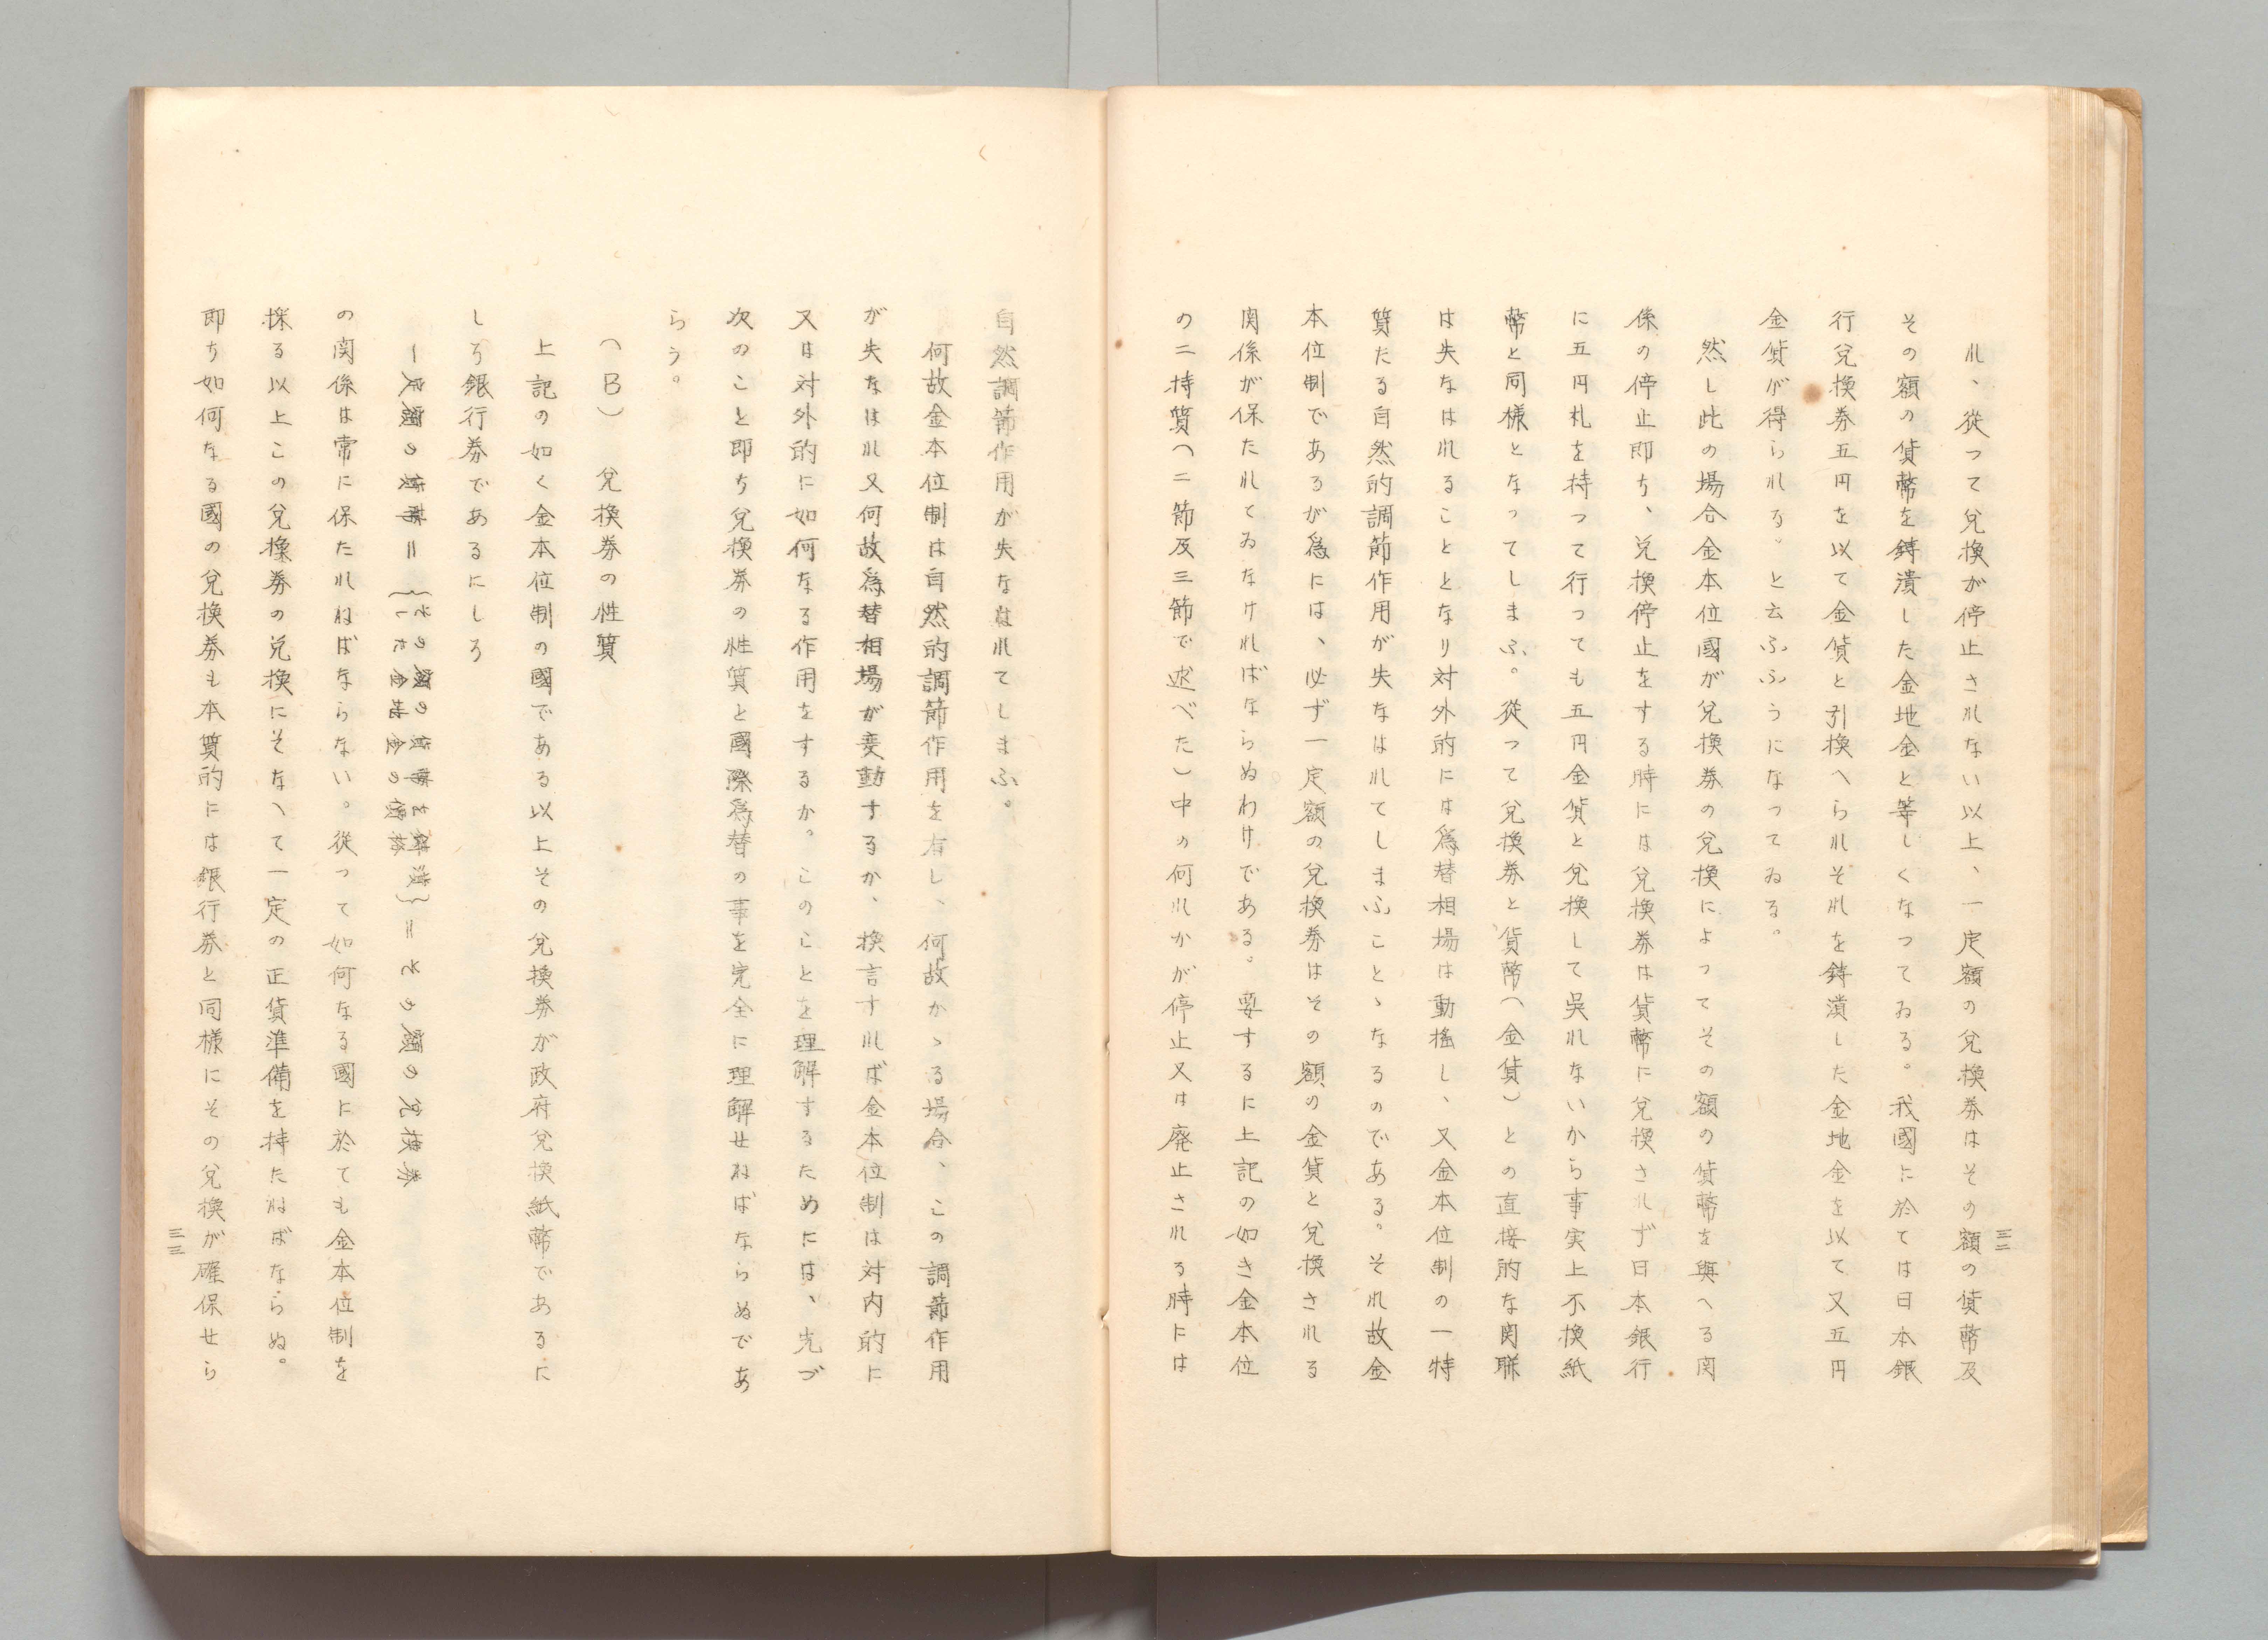 三二
れ、從つて兌換が停止されない以上、一定額の兌換券はその額の貨幣及
その額の貨幣を鋳潰した金地金と等しくなつてゐる。我國に於ては日本銀
行兌換券五円を以て金貨と引換へられそれを鋳潰した金地金を以て又五円
金貨が得られる。と云ふふうになつてゐる。
然し此の場合金本位國が兌換券の兌換によつてその額の貨幣を與へる関
係の停止即ち、兌換停止をする時には兌換券は貨幣に兌換されず日本銀行
に五円札を持つて行つても五円金貨と兌換して呉れないから事実上不換紙
幣と同様となってしまふ。從つて兌換券と貨幣(金貨)との直接的な関聯
は失なはれることとなり対外的には爲替相場は動搖し、又金本位制の一特
質たる自然的調節作用が失なはれてしまふことゝなるのである。それ故金
本位制であるが爲には、必ず一定額の兌換券はその額の金貨と兌換される
関係が保たれてゐなければならぬわけである。要するに上記の如き金本位
の二持質(二節及三節で述べた)中の何れかが停止又は廃止される時には
自然調節作用が失なはれてしまふ。
何故金本位制は自然的調節作用を有し、何故かゝる場合、この調節作用
が失なはれ又何故爲替相場が変動するか、換言すれば金本位制は対内的に
又は対外的に如何なる作用をするか。このことを理解するためには、先づ
次のこと即ち兌換券の性質と國際爲替の事を完全に理解せねばならぬであ
らう。
(B) 兌換券の性質
上記の如く金本位制の國である以上その兌換券が政府兌換紙幣であるに
しろ銀行券であるにしろ
一定額の貨幣＝{その額の貨幣を鋳潰
した金地金の價格}＝その額の兌換券
の関係は常に保たれねばならない。從つて如何なる國に於ても金本位制を
採る以上この兌換券の兌換にそなへて一定の正貨準備を持たねばならぬ。
即ち如何なる國の兌換券も本質的には銀行券と同様にその兌換が確保せら
三三